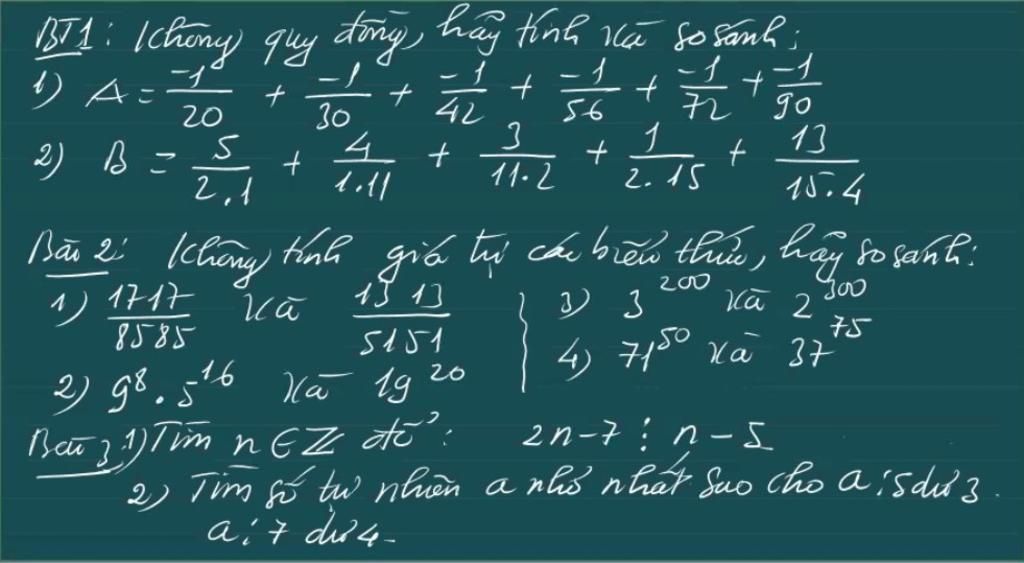 BT1: Không quy đồng, hãy tính và so sánh:
1) A = -1/20 + -1/30 + -1/42 + -1/56 + -1/72 + -1/90
2) B = 5/2.1 + 4/1.11 + 3/11.2 + 1/2.15 + 13/15.4
Bài 2: Không tính giá trị các biểu thức, hãy so sánh:
1) 1717/8585 và 1313/5151
2) 9^8 . 5^16 và 19^20
3) 3^200 và 2^300
4) 71^50 và 37^75
Bài 3: 1) Tìm n ∈ Z để: 2n-7 ⋮ n-5
2) Tìm số tự nhiên a nhỏ nhất sao cho a : 5 dư 3.
a : 7 dư 4.